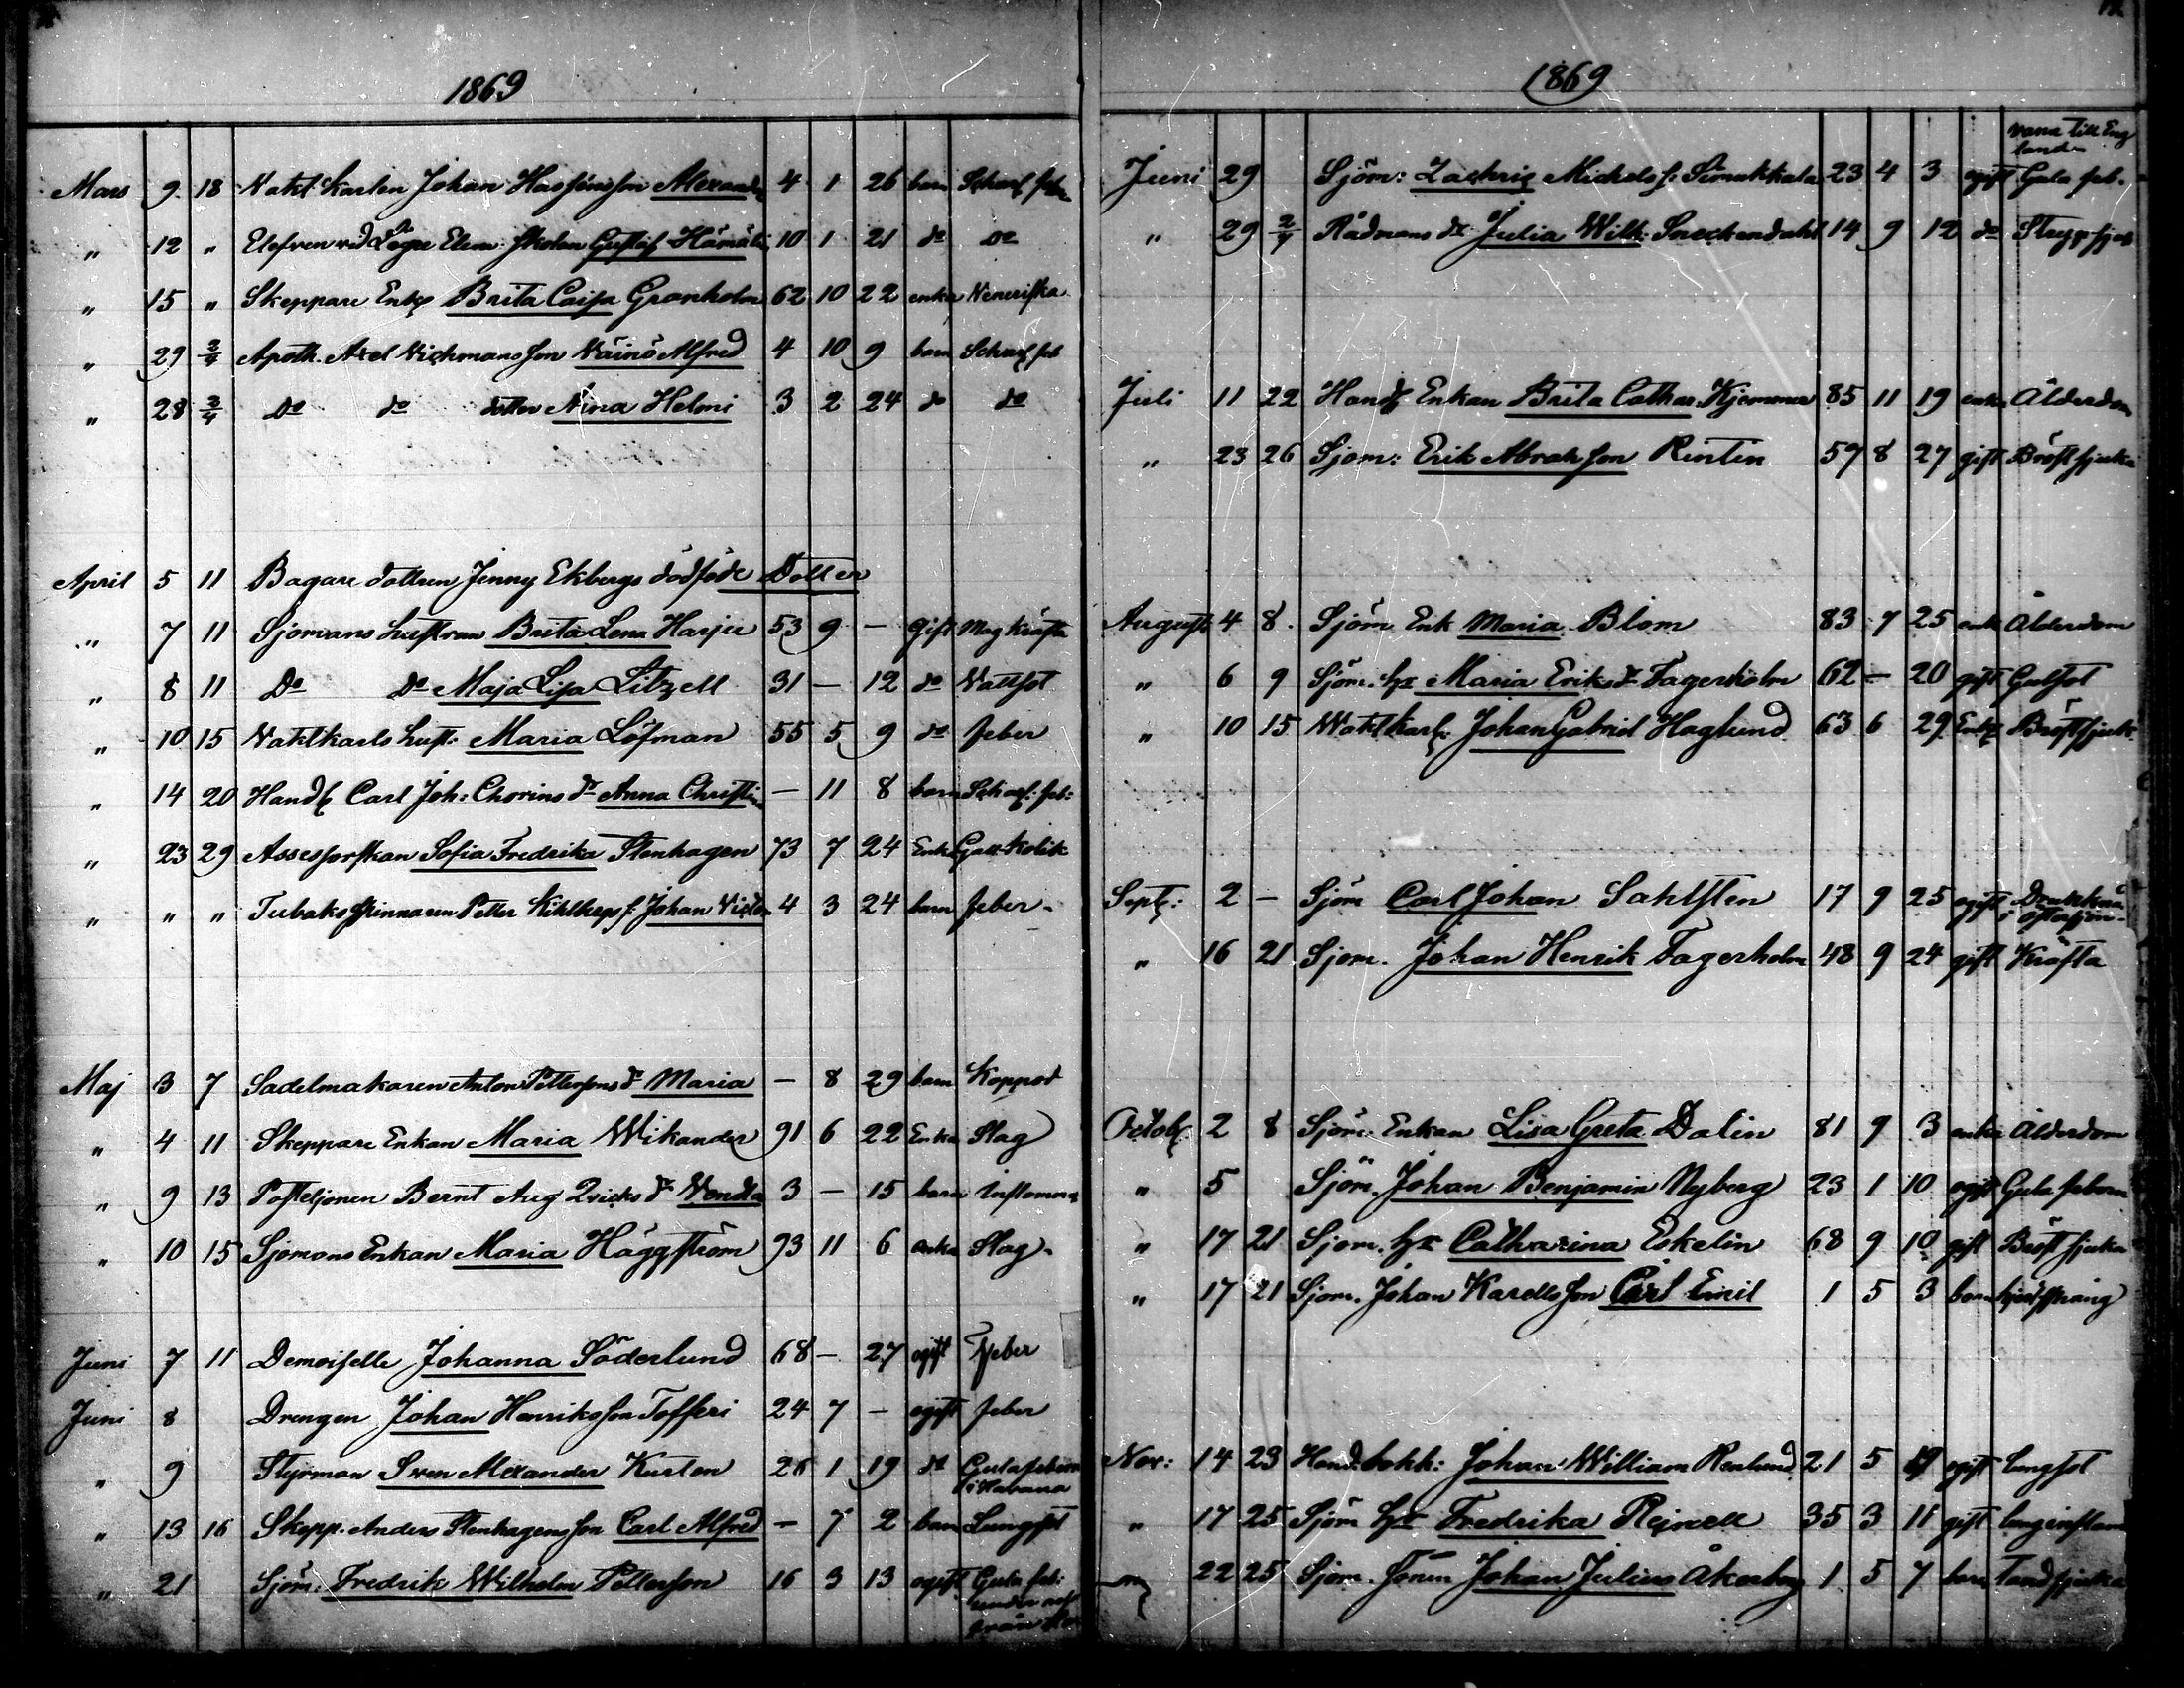 1869
Mars 9 18 Vakt Karlen Johan Hassinens son Alexand 4 1 26 barn Scharl feb
" 12 " Elefven vid Lägre Elem: Skolan Gustaf Hämäl 10 1 21 do do
" 15 " Skeppare Enk Brita Caisa Granholm 62 10 22 enka Veneriska
" 29 2/4 Apoth. Axel Wichmans son Väinö Alfred 4 10 9 barn Scharl feb
" 28 2/4 Do do dotter Aina Helmi 3 2 24 do do
April 5 11 Bagare dottren Jenny Ekbergs dödföde Dotter
" 7 11 Sjömans hustrun Brita Lena Harju 53 9 — Gift Mag Kräfta
" 8 11 Do Do Maja Lisa Litzell 31 — 12 do Vattsot
" 10 15 Vaktkarls hust: Maria Löfman 55 5 9 do feber
" 14 20 Handl Carl Joh: Chorins dr Anna Christin — 11 8 barn Scharl: feb:
" 23 29 Assessorskan Sofia Fredrika Stenhagen 73 7 24 Enka Gall Kolik
" " " Tobaks Spinnaren Petter Kihlbergs s. Johan Victor 4 3 24 barn feber
Maj 3 7 Sadelmakaren Anton Pettersons dr Maria — 8 29 barn Koppor
" 4 11 Skeppare Enkan Maria Wikander 91 6 22 Enka Slag
" 9 13 Posteljonen Bernt Aug Qvicks dr Vendla 3 — 15 barn Inflamma
" 10 15 Sjömans Enkan Maria Häggström 93 11 6 enka Slag
Juni 7 11 Demoiselle Johanna Söderlund 68 — 27 ogift feber
Juni 8 Drengen Johan Henriksson Tofferi 24 7 — ogift feber
" 9 Styrman Sven Alexander Kurten 26 1 19 do Gula febern
i Havana
" 13 16 Skepp. Anders Stenhagens son Carl Alfred — 7 2 barn Lungsot
" 21 Sjöm: Fredrik Wilhelm Petterson 16 3 13 ogift Gula feb:
under
från
1869
vana till Eng
land
Juni 29 Sjöm: Zachris Michels s. Simukkala 23 4 3 ogift Gula feb.
" 29 2/7 Rådmans dr Julia Wilh. Sneckendahl 14 9 12 do Strypsjuk
Juli 11 22 Handl Enkan Brita Cathar. Kjemmer 85 11 19 enka Ålderdom
" 23 26 Sjöm: Erik Abrahsson Rintin 59 8 27 gift Bröstsjuka
August 4 8 Sjöm Enk Maria Blom 83 7 25 enk Ålderdom
" 6 9 Sjöm. hu Maria Eriks dr Fagerholm 62 — 20 gift Gulsot
" 10 15 Wakt karl: Johan Gabriel Haglund 63 6 29 Enkl Bröstsjuk
Sept: 2 — Sjöm Carl Johan Sahlsten 17 9 25 ogift Drukknad
i Östersjön
" 16 21 Sjöm. Johan Henrik Fagerholm 48 9 24 gift Kräfta
Octob. 2 8 Sjöm. Enkan Lisa Greta Dalin 81 9 3 enka Ålderdom
" 5 Sjöm. Johan Benjamin Nyberg 23 1 10 ogift Gula febern
" 17 21 Sjöm. hu Catharina Eskelin 68 9 10 gift Bröstsjuka
" 17 21 Sjöm. Johan Karells son Carl Emil 1 5 3 barn
Nov: 14 23 Hand. bokh: Johan William Renlund 21 5 19 ogift lungsot
" 17 25 Sjöm hu Fredrika Rejnell 35 3 11 gift lunginflam
" 22 25 Sjöm. Sonen Johan Julius Åkerberg 1 5 7 barn Tandsjuka